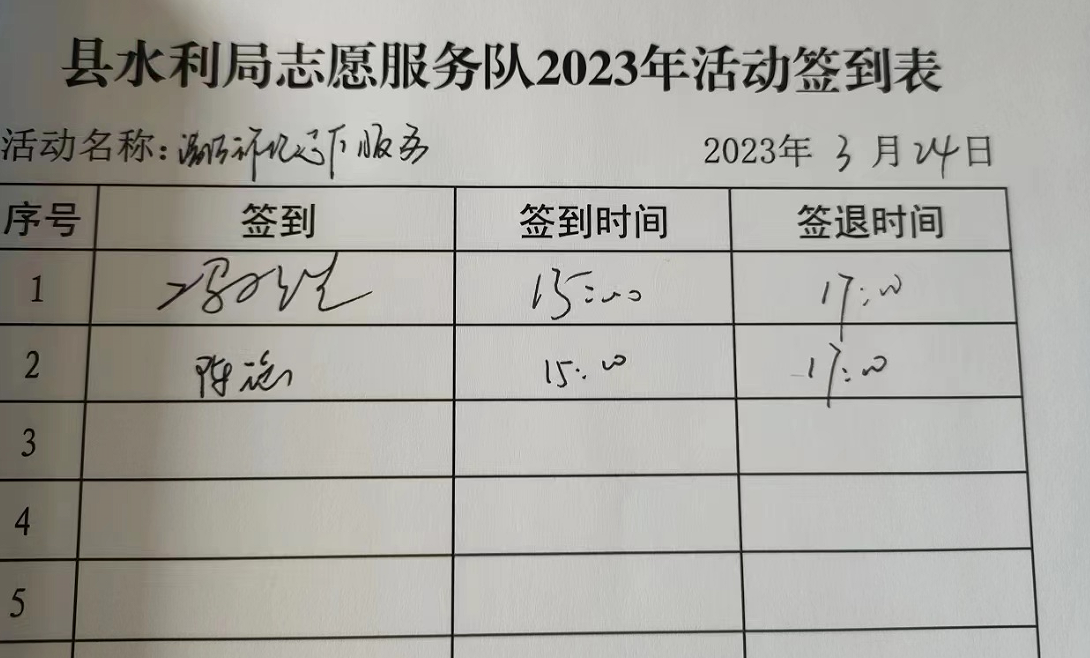 县水利局志愿服务队2023年活动签到表
活动名称: 服务
2023年 3 月 24 日
序号 签到 签到时间 签退时间
1 15:00 17:00
2 陈 15:00 17:00
3
4
5